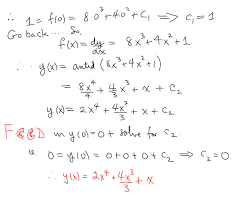 ∴ 1 = f(0) = 8·0³ + 4·0² + C₁ ⟹ C₁ = 1
Go back.... So,
f(x) = dy/dx = 8x³ + 4x² + 1
∴ y(x) = antid (8x³ + 4x² + 1)
= 8x⁴/4 + 4/3 x³ + x + C₂
y(x) = 2x⁴ + 4x³/3 + x + C₂
in y(0) = 0 + solve for C₂
ie 0 = y(0) = 0 + 0 + 0 + C₂ ⟹ C₂ = 0
∴ y(x) = 2x⁴ + 4x³/3 + x